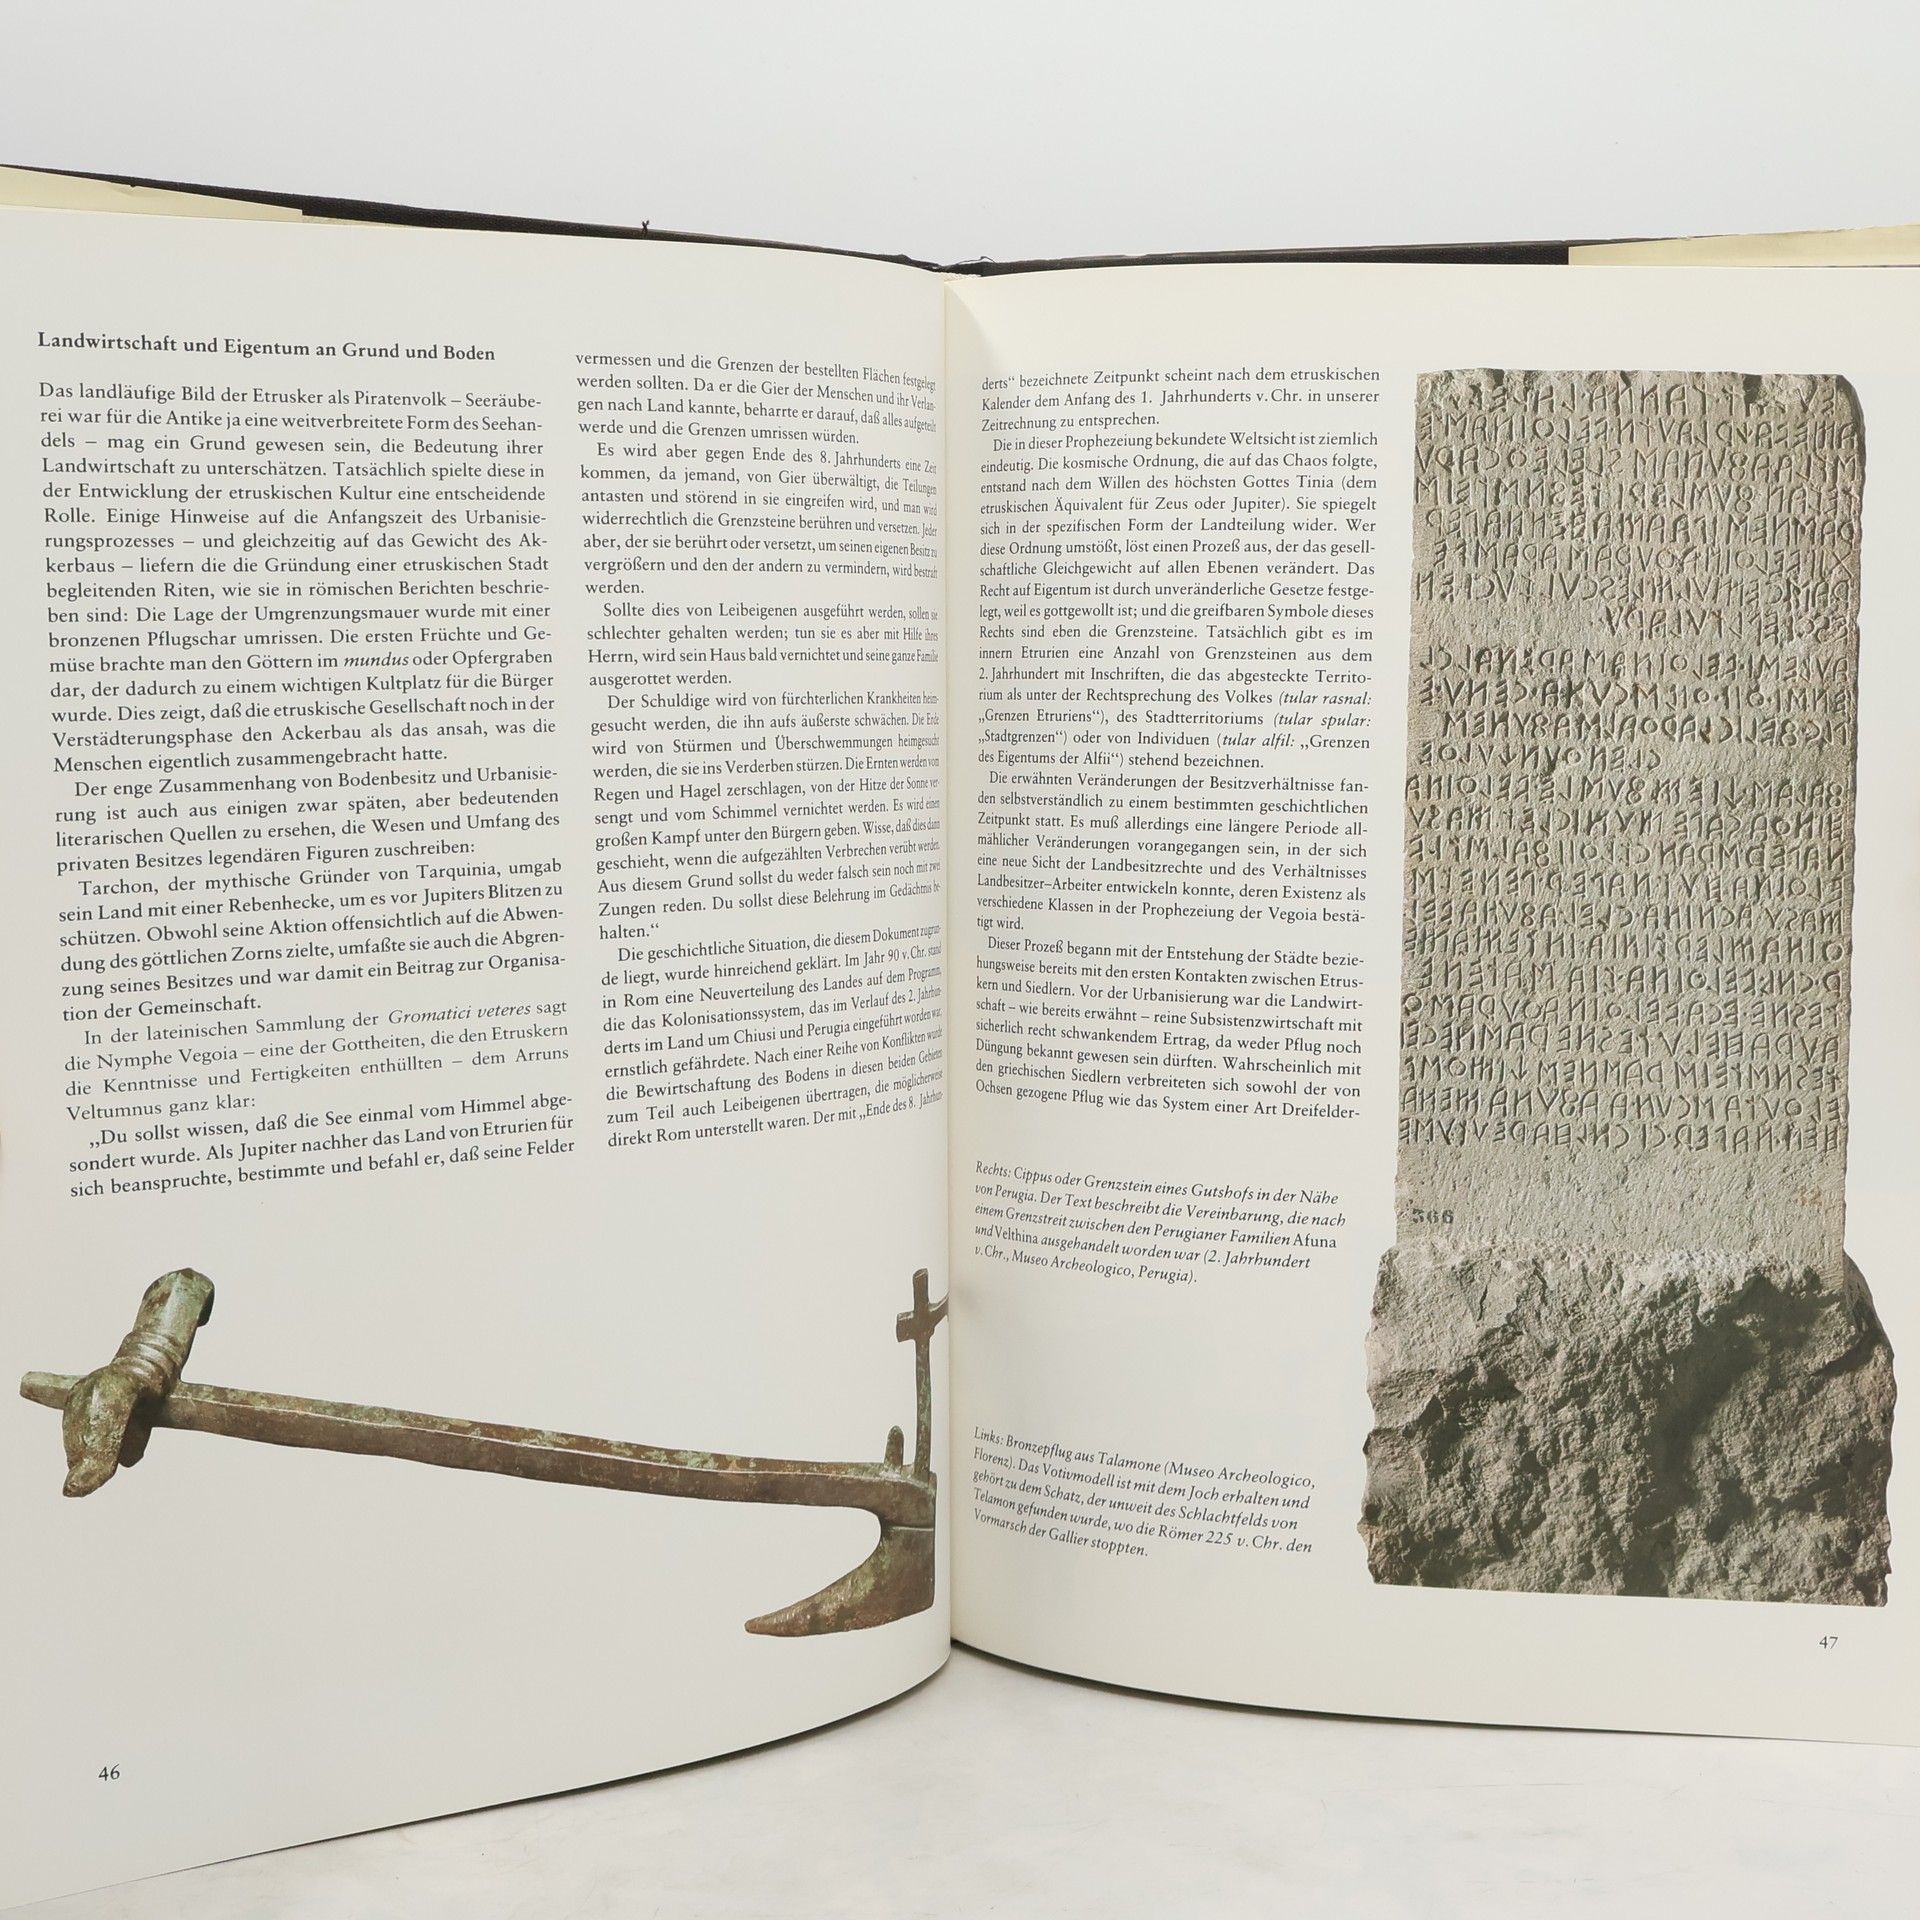 Landwirtschaft und Eigentum an Grund und Boden
Das landläufige Bild der Etrusker als Piratenvolk – Seeräube-
rei war für die Antike ja eine weitverbreitete Form des Seehan-
dels – mag ein Grund gewesen sein, die Bedeutung ihrer
Landwirtschaft zu unterschätzen. Tatsächlich spielte diese in
der Entwicklung der etruskischen Kultur eine entscheidende
Rolle. Einige Hinweise auf die Anfangszeit des Urbanisie-
rungsprozesses – und gleichzeitig auf das Gewicht des Ak-
kerbaus – liefern die die Gründung einer etruskischen Stadt
begleitenden Riten, wie sie in römischen Berichten beschrie-
ben sind: Die Lage der Umgrenzungsmauer wurde mit einer
bronzenen Pflugschar umrissen. Die ersten Früchte und Ge-
müse brachte man den Göttern im mundus oder Opfergraben
dar, der dadurch zu einem wichtigen Kultplatz für die Bürger
wurde. Dies zeigt, daß die etruskische Gesellschaft noch in der
Verstädterungsphase den Ackerbau als das ansah, was die
Menschen eigentlich zusammengebracht hatte.
Der enge Zusammenhang von Bodenbesitz und Urbanisie-
rung ist auch aus einigen zwar späten, aber bedeutenden
literarischen Quellen zu ersehen, die Wesen und Umfang des
privaten Besitzes legendären Figuren zuschreiben:
Tarchon, der mythische Gründer von Tarquinia, umgab
sein Land mit einer Rebenhecke, um es vor Jupiters Blitzen zu
schützen. Obwohl seine Aktion offensichtlich auf die Abwen-
dung des göttlichen Zorns zielte, umfaßte sie auch die Abgren-
zung seines Besitzes und war damit ein Beitrag zur Organisa-
tion der Gemeinschaft.
In der lateinischen Sammlung der Gromatici veteres sagt
die Nymphe Vegoia – eine der Gottheiten, die den Etruskern
die Kenntnisse und Fertigkeiten enthüllten – dem Arruns
Veltumnus ganz klar:
„Du sollst wissen, daß die See einmal vom Himmel abge-
sondert wurde. Als Jupiter nachher das Land von Etrurien für
sich beanspruchte, bestimmte und befahl er, daß seine Felder
vermessen und die Grenzen der bestellten Flächen festgelegt
werden sollten. Da er die Gier der Menschen und ihr Verlan-
gen nach Land kannte, beharrte er darauf, daß alles aufgeteilt
werde und die Grenzen umrissen würden.
Es wird aber gegen Ende des 8. Jahrhunderts eine Zeit
kommen, da jemand, von Gier überwältigt, die Teilungen
antasten und störend in sie eingreifen wird, und man wird
widerrechtlich die Grenzsteine berühren und versetzen. Jeder
aber, der sie berührt oder versetzt, um seinen eigenen Besitz zu
vergrößern und den der andern zu vermindern, wird bestraft
werden.
Sollte dies von Leibeigenen ausgeführt werden, sollen sie
schlechter gehalten werden; tun sie es aber mit Hilfe ihres
Herrn, wird sein Haus bald vernichtet und seine ganze Familie
ausgerottet werden.
Der Schuldige wird von fürchterlichen Krankheiten heim-
gesucht werden, die ihn aufs äußerste schwächen. Die Erde
wird von Stürmen und Überschwemmungen heimgesucht
werden, die sie ins Verderben stürzen. Die Ernten werden von
Regen und Hagel zerschlagen, von der Hitze der Sonne ver-
sengt und vom Schimmel vernichtet werden. Es wird einen
großen Kampf unter den Bürgern geben. Wisse, daß dies dann
geschieht, wenn die aufgezählten Verbrechen verübt werden.
Aus diesem Grund sollst du weder falsch sein noch mit zwei
Zungen reden. Du sollst diese Belehrung im Gedächtnis be-
halten.“
Die geschichtliche Situation, die diesem Dokument zugrun-
de liegt, wurde hinreichend geklärt. Im Jahr 90 v. Chr. stand
in Rom eine Neuverteilung des Landes auf dem Programm,
die das Kolonisationssystem, das im Verlauf des 2. Jahrhun-
derts im Land um Chiusi und Perugia eingeführt worden war,
ernstlich gefährdete. Nach einer Reihe von Konflikten wurde
die Bewirtschaftung des Bodens in diesen beiden Gebieten
zum Teil auch Leibeigenen übertragen, die möglicherweise
direkt Rom unterstellt waren. Der mit „Ende des 8. Jahrhun-
46
derts“ bezeichnete Zeitpunkt scheint nach dem etruskischen
Kalender dem Anfang des 1. Jahrhunderts v. Chr. in unserer
Zeitrechnung zu entsprechen.
Die in dieser Prophezeiung bekundete Weltsicht ist ziemlich
eindeutig. Die kosmische Ordnung, die auf das Chaos folgte,
entstand nach dem Willen des höchsten Gottes Tinia (dem
etruskischen Äquivalent für Zeus oder Jupiter). Sie spiegelt
sich in der spezifischen Form der Landteilung wider. Wer
diese Ordnung umstößt, löst einen Prozeß aus, der das gesell-
schaftliche Gleichgewicht auf allen Ebenen verändert. Das
Recht auf Eigentum ist durch unveränderliche Gesetze festge-
legt, weil es gottgewollt ist; und die greifbaren Symbole dieses
Rechts sind eben die Grenzsteine. Tatsächlich gibt es im
innern Etrurien eine Anzahl von Grenzsteinen aus dem
2. Jahrhundert mit Inschriften, die das abgesteckte Territo-
rium als unter der Rechtsprechung des Volkes (tular rasnal:
„Grenzen Etruriens“), des Stadtterritoriums (tular spular:
„Stadtgrenzen“) oder von Individuen (tular alfil: „Grenzen
des Eigentums der Alfii“) stehend bezeichnen.
Die erwähnten Veränderungen der Besitzverhältnisse fan-
den selbstverständlich zu einem bestimmten geschichtlichen
Zeitpunkt statt. Es muß allerdings eine längere Periode all-
mählicher Veränderungen vorangegangen sein, in der sich
eine neue Sicht der Landbesitzrechte und des Verhältnisses
Landbesitzer–Arbeiter entwickeln konnte, deren Existenz als
verschiedene Klassen in der Prophezeiung der Vegoia bestä-
tigt wird.
Dieser Prozeß begann mit der Entstehung der Städte bezie-
hungsweise bereits mit den ersten Kontakten zwischen Etrus-
kern und Siedlern. Vor der Urbanisierung war die Landwirt-
schaft – wie bereits erwähnt – reine Subsistenzwirtschaft mit
sicherlich recht schwankendem Ertrag, da weder Pflug noch
Düngung bekannt gewesen sein dürften. Wahrscheinlich mit
den griechischen Siedlern verbreiteten sich sowohl der von
Ochsen gezogene Pflug wie das System einer Art Dreifelder-
Rechts: Cippus oder Grenzstein eines Gutshofs in der Nähe
von Perugia. Der Text beschreibt die Vereinbarung, die nach
einem Grenzstreit zwischen den Perugianer Familien Afuna
und Velthina ausgehandelt worden war (2. Jahrhundert
v. Chr., Museo Archeologico, Perugia).
Links: Bronzepflug aus Talamone (Museo Archeologico,
Florenz). Das Votivmodell ist mit dem Joch erhalten und
gehört zu dem Schatz, der unweit des Schlachtfelds von
Telamon gefunden wurde, wo die Römer 225 v. Chr. den
Vormarsch der Gallier stoppten.
366
47